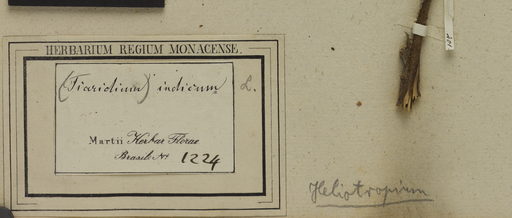 HERBARIUM REGIUM MONACENSE.
(Tiaridium) indicum L.
Martii Herbar. Florae
Brasil. No. 1224
Heliotropium